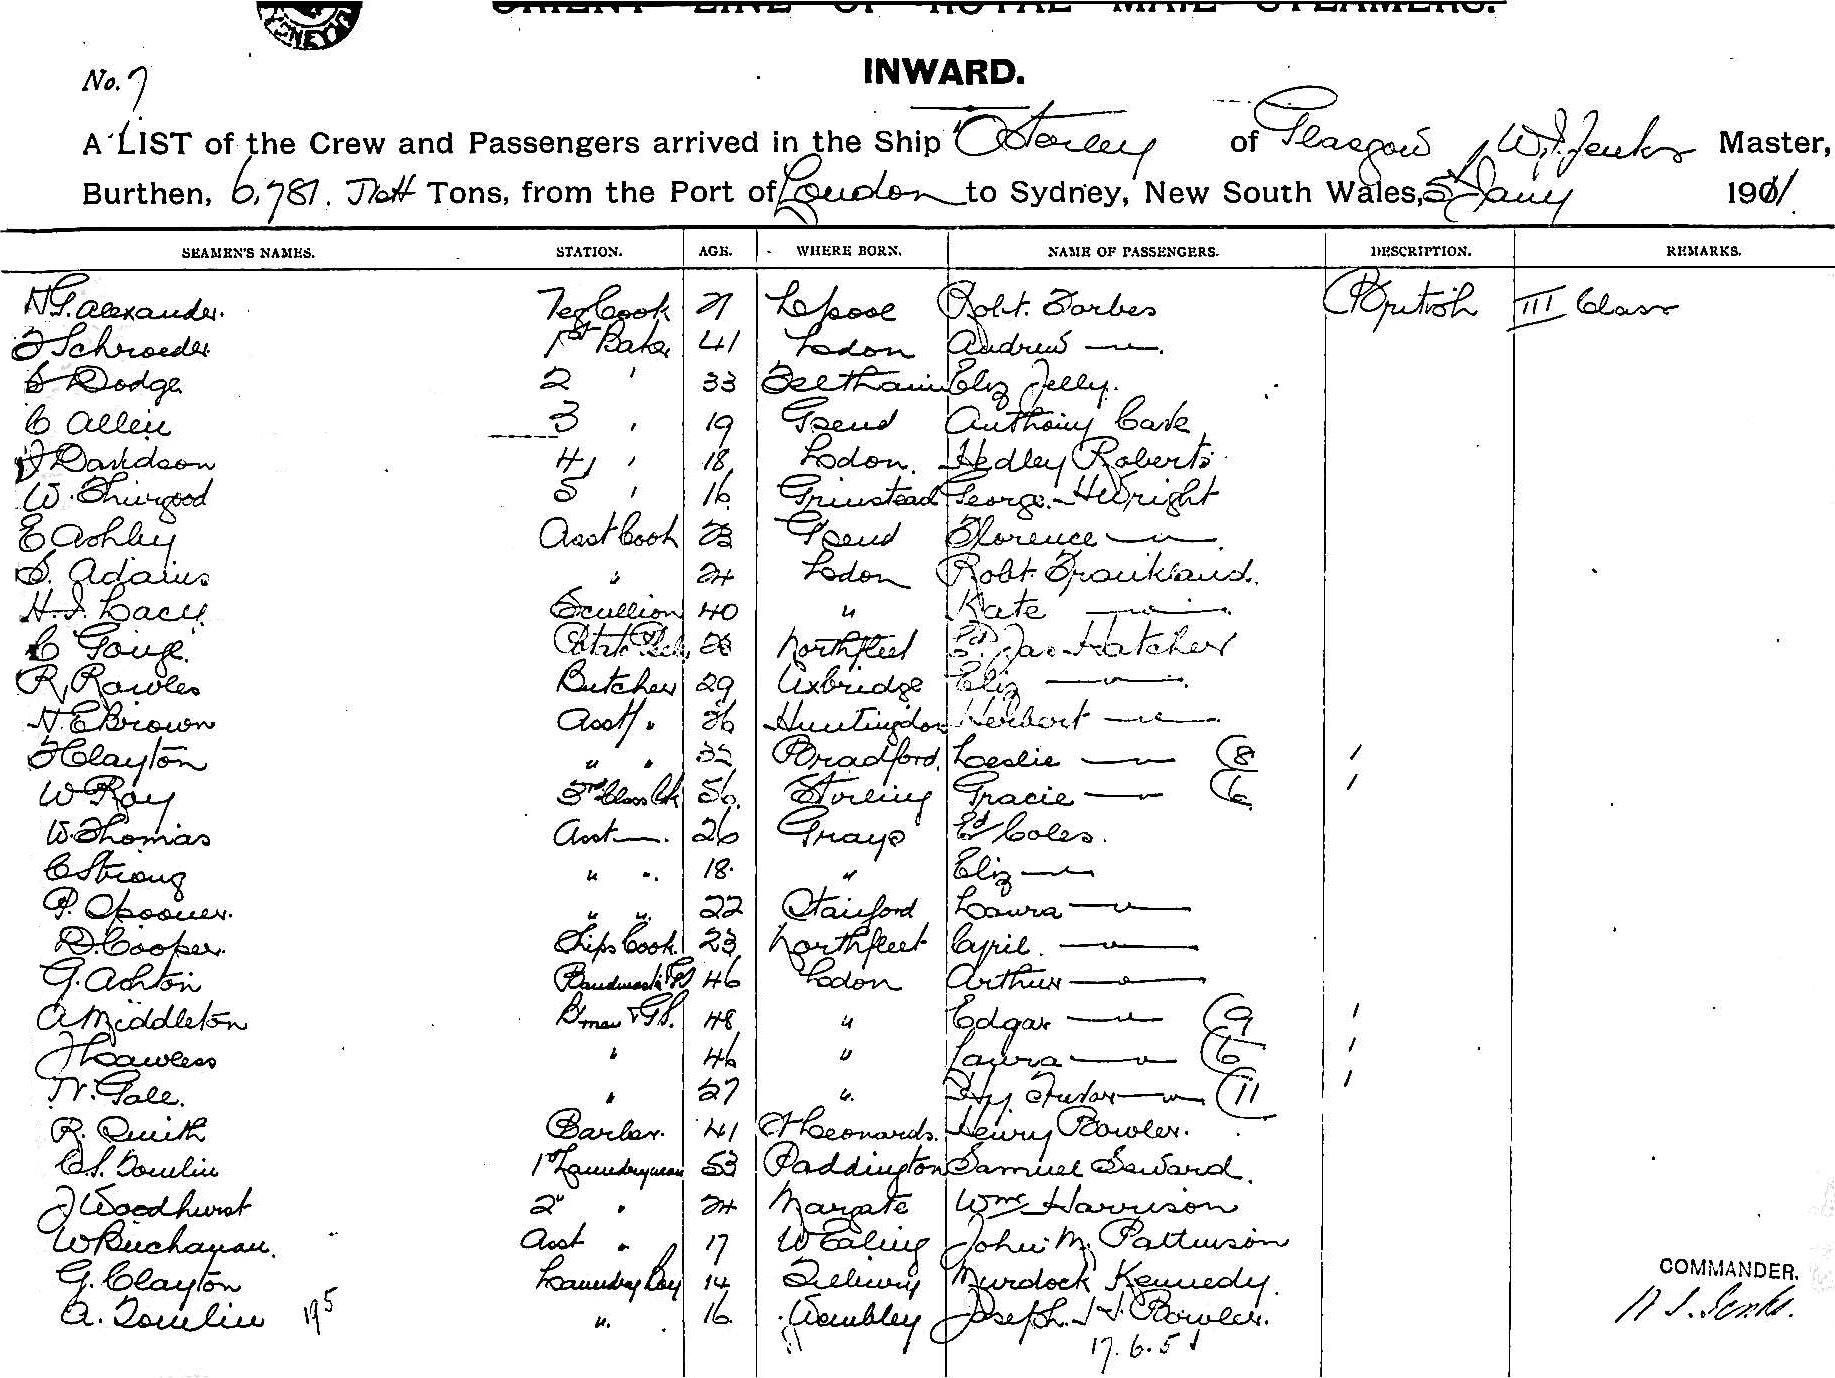 ORIENT LINE OF ROYAL MAIL STEAMERS.
SYDNEY
No. 7
INWARD.
A LIST of the Crew and Passengers arrived in the Ship "Osterley of Glasgow, W.S. Jenks Master,
Burthen, 6,781. Nett Tons, from the Port of London to Sydney, New South Wales, 5th Jany 1911.
SEAMEN'S NAMES. STATION. AGE. WHERE BORN. NAME OF PASSENGERS. DESCRIPTION. REMARKS.
Alexander. Veg Cook 21 L'pool Robt. Forbes British III Class
Schroeder 1st Baker 41 Lodon Andrew —"—.
Dodge 2 ' 33 Eliz Jelly.
C Allen 3 ' 19 G'send Anthony Cave
J Davidson 4 ' 18 Lodon. Hedley Roberts
W. Thurgood 5 ' 16 Grinstead George H Wright
E Ashley Asst Cook 23 G'send Florence —"—.
S. Adams " 24 Lodon Robt. Frankland.
Lacey. Scullion 40 " Kate —"—.
C Gouge. 23 Northfleet Jas Hatcher
R. Rowles Butcher 29 Uxbridge Eliz —"—.
H. E Brown Asst " 26 Huntingdon Herbert —"—.
F Clayton " " 32 Bradford. Leslie —"— (8 '
W Ray 3rd Class Ck 56. Stirling Gracie —"— (6 '
W. Thomas Asst —. 26 Grays Ed Coles.
C Strong " ". 18. " Eliz —"—
P. Spooner. " ". 22 Stanford Laura —"—
D. Cooper. Ships Cook. 23 Northfleet Cyril. —"—
G. Ashton Bandmaster 46 Lodon Arthur —"—
A Middleton B'man & G.S. 48 " Edgar —"— (9 '
J Lawless " 46 " Laura —"— (6 '
W. Gale. " 27 ". Hy —"— (11 '
R. Smith Barber. 41 St Leonards. Henry Bowler.
C.S. Tomlin 1st Laundryman 53 Paddington Samuel Seward.
J Woodhurst 2" " 24 Margate Wm. Harrison
W Buchanan. Asst " 17 W Ealing John M. Pattinson
G. Clayton Laundry Boy 14 Tilbury Murdock Kennedy.
A. Tomlin 195 ". 16. Wembley Joseph Bowler.
17.6.51
COMMANDER.
W S. Jenks.